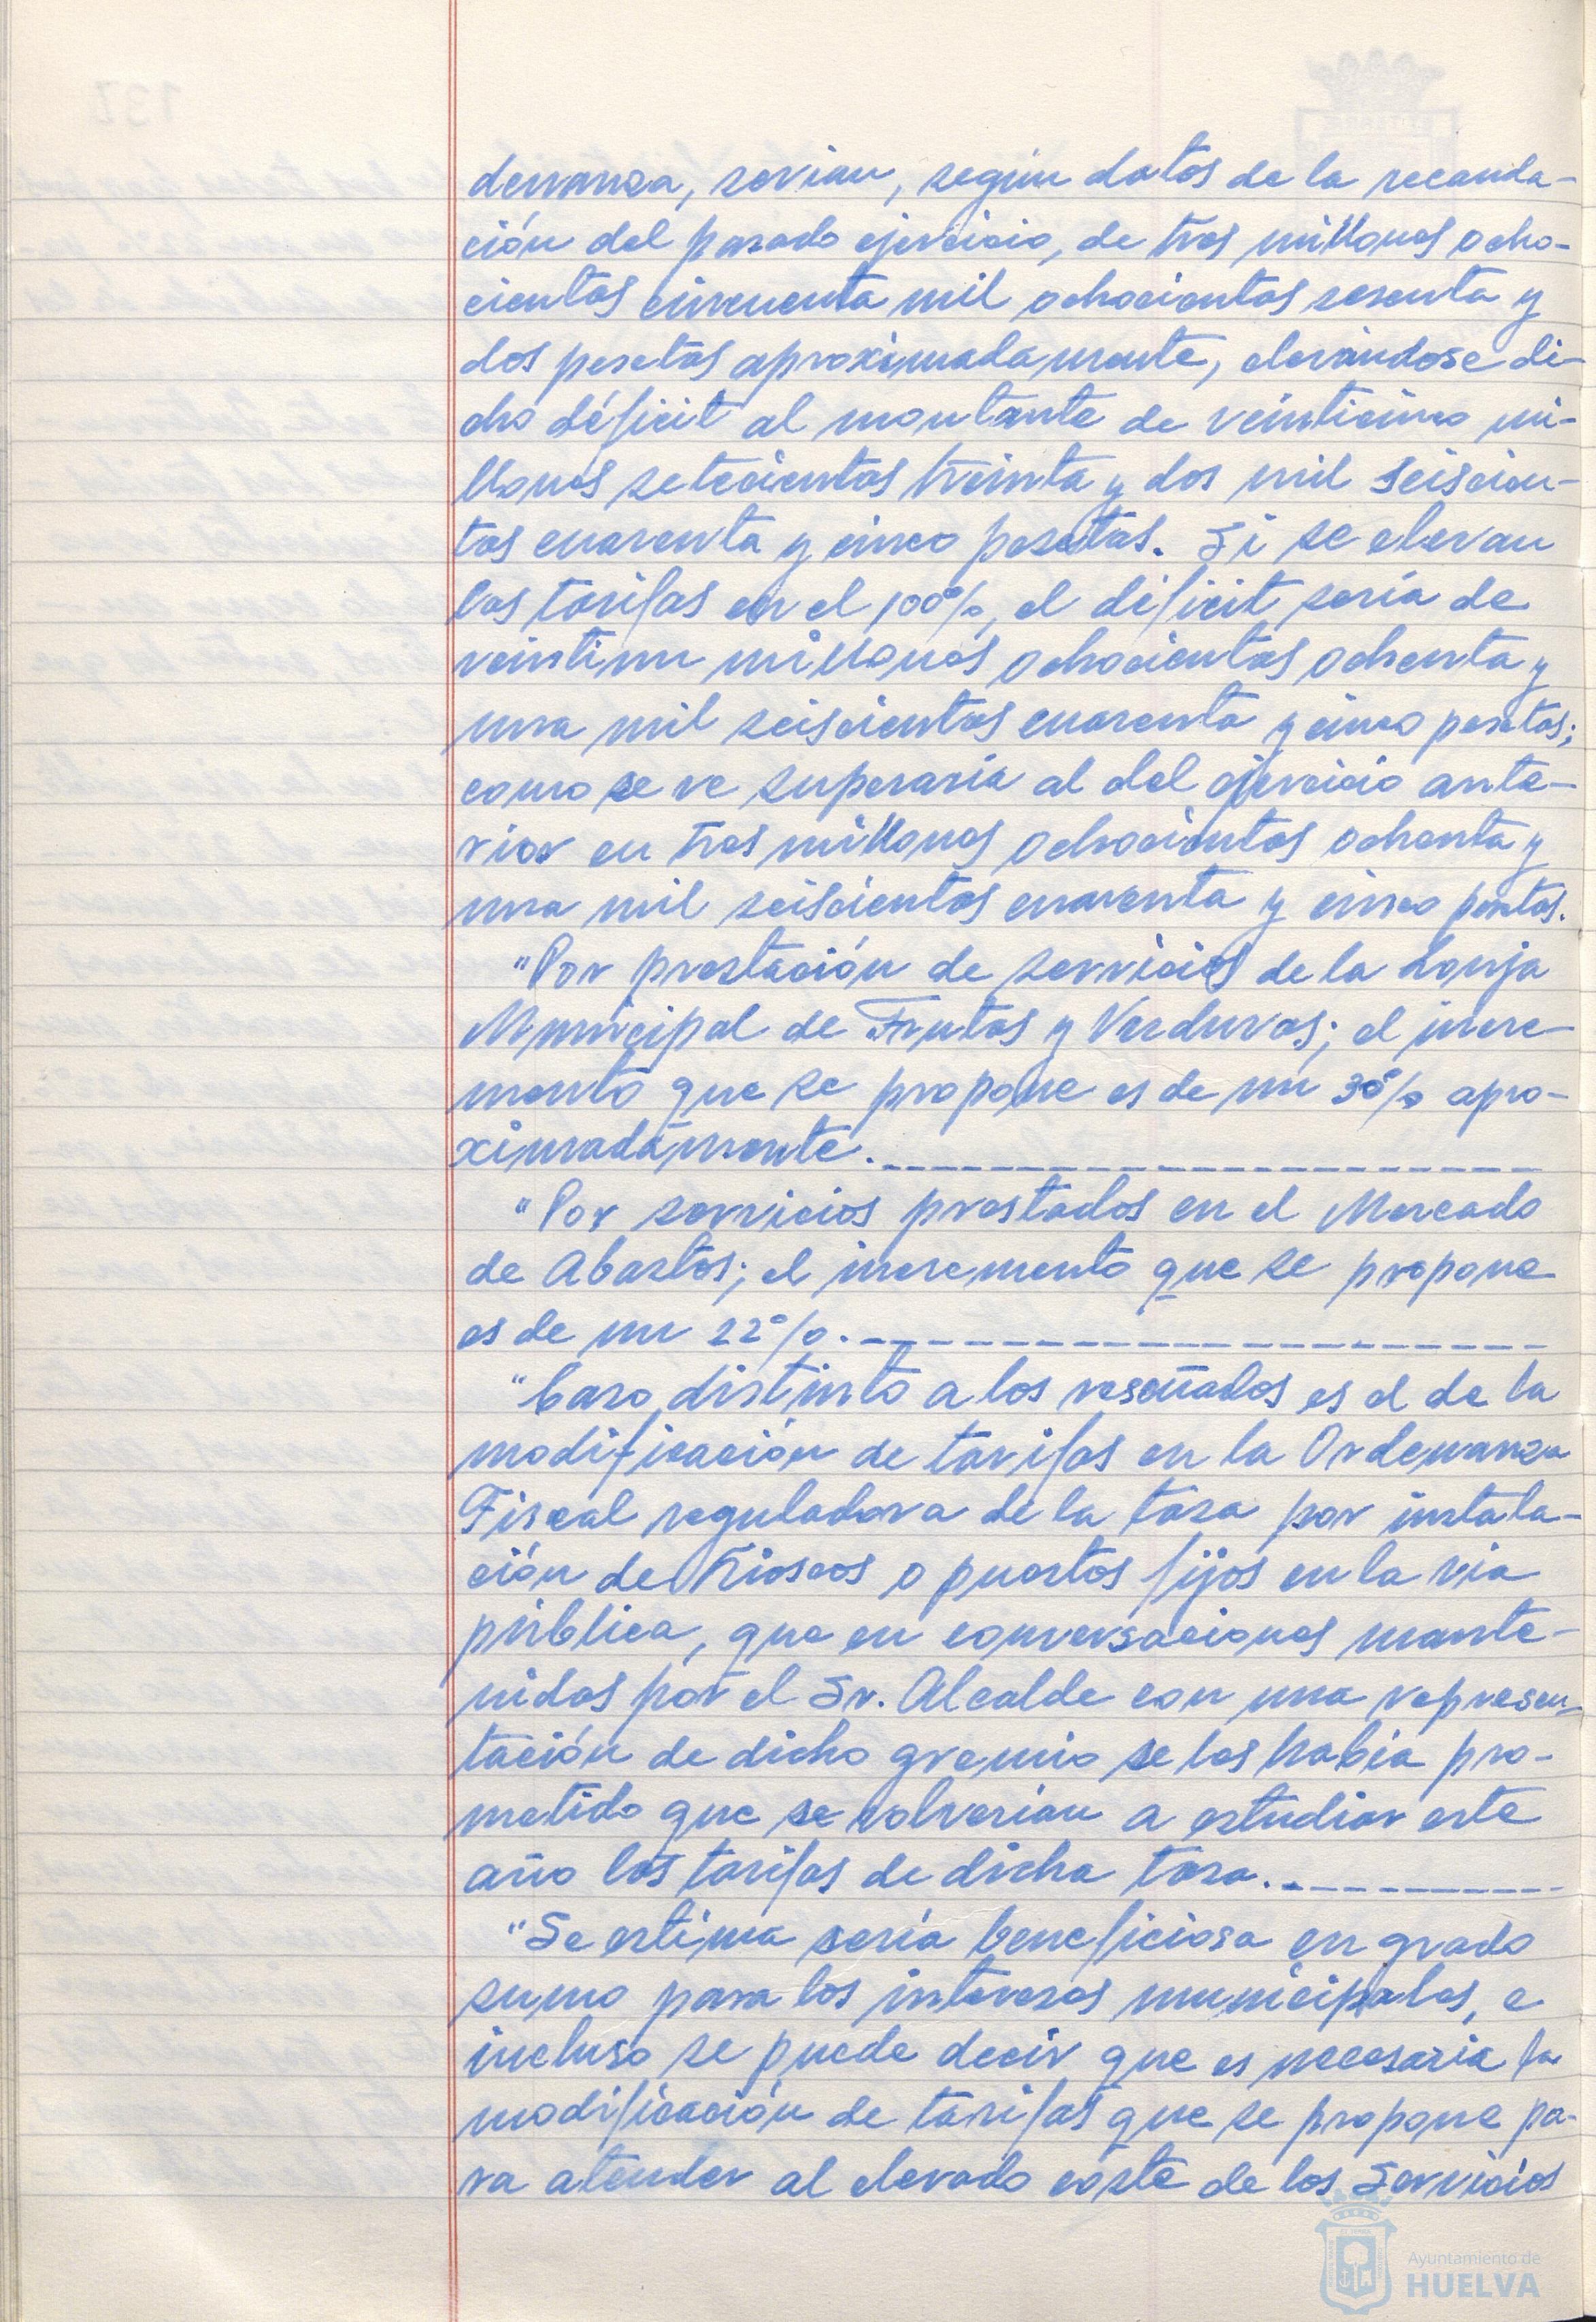 denanza, serian, según datos de la recauda-
ción del pasado ejercicio, de tres millones ocho-
cientas cincuenta mil ochocientas sesenta y
dos pesetas aproximadamente, elevándose di-
cho déficit al montante de veinticinco mi-
llones setecientas treinta y dos mil seiscien-
tas cuarenta y cinco pesetas. Si se elevan
las tarifas en el 100%, el déficit sería de
veintiun millones ochocientas ochenta y
una mil seiscientas cuarenta y cinco pesetas;
como se ve superaría al del ejercicio ante-
rior en tres millones ochocientas ochenta y
una mil seiscientas cuarenta y cinco pesetas.
"Por prestación de servicios de la Lonja
Municipal de Frutas y Verduras; el incre-
mento que se propone es de un 30% apro-
ximadamente.
"Por servicios prestados en el Mercado
de Abastos; el incremento que se propone
es de un 22%.
"Caso distinto a los reseñados es el de la
modificación de tarifas en la Ordenanza
Fiscal reguladora de la tasa por instala-
ción de Kioscos o puestos fijos en la via
pública, que en conversaciones mante-
nidas por el Sr. Alcalde con una represen-
tación de dicho gremio se les habia pro-
metido que se volverian a estudiar este
año las tarifas de dicha tasa.
"Se estima sería beneficiosa en grado
sumo para los intereses municipales, e
incluso se puede decir que es necesaria la
modificación de tarifas que se propone pa-
ra atender al elevado coste de los Servicios
Ayuntamiento de
HUELVA
137